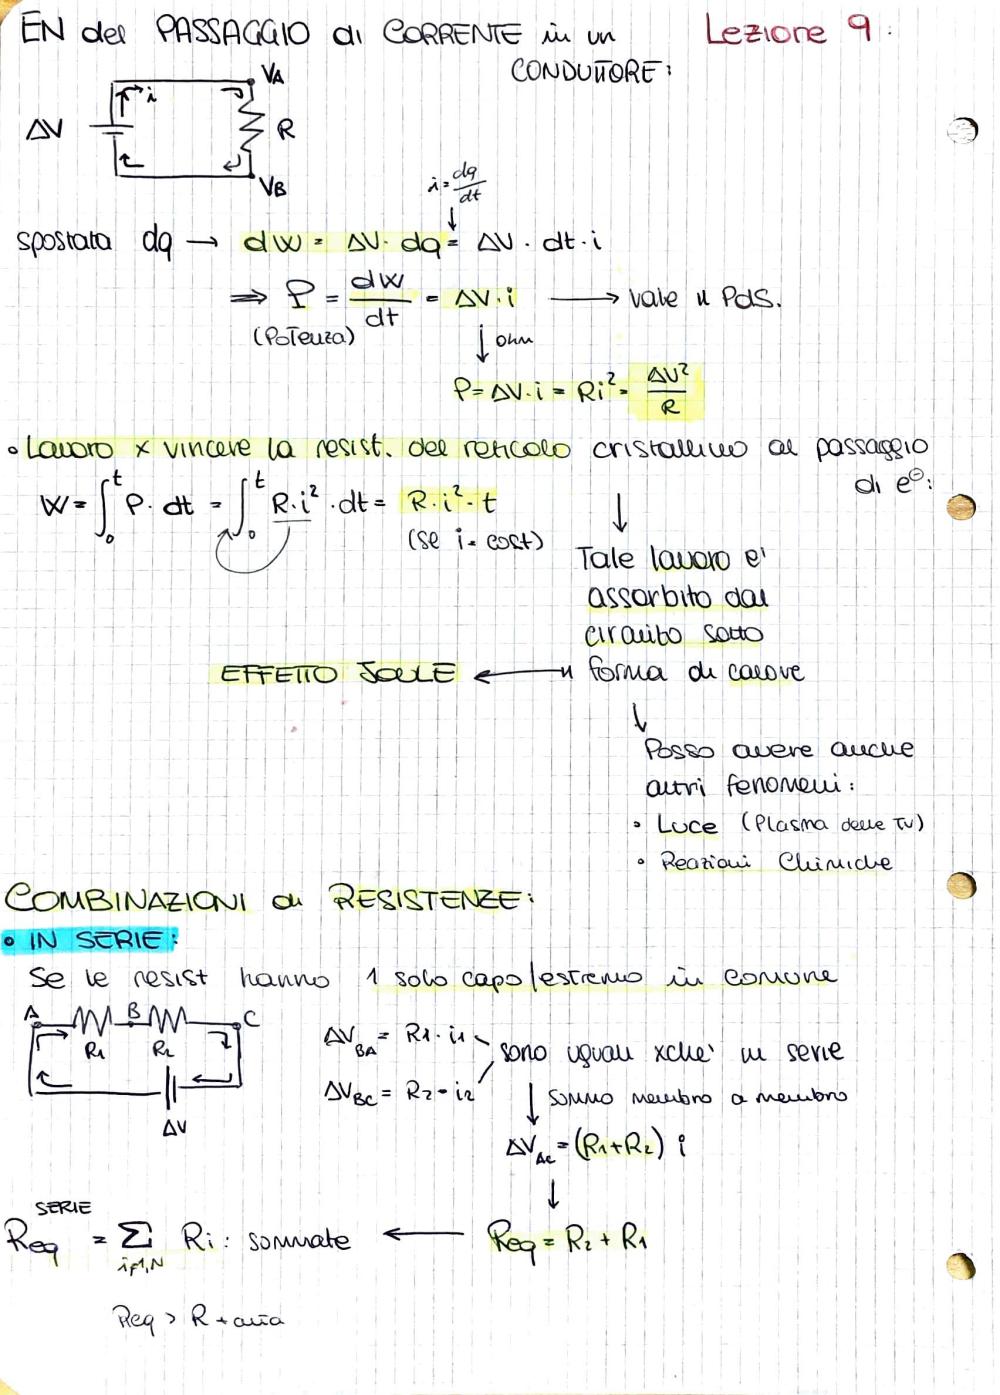 EN del PASSAGGIO di CORRENTE in un CONDUTTORE:
Lezione 9:
ΔV
i
VA
R
VB
i = dq/dt
spostata dq → dW = ΔV · dq = ΔV · dt · i
⇒ P = dW/dt = ΔV · i → vale il PdS.
(Potenza)
↓ ohm
P = ΔV · i = Ri² = ΔV²/R
• Lavoro x vincere la resist. del reticolo cristallino al passaggio di e⊖:
W = ∫₀ᵗ P · dt = ∫₀ᵗ R · i² · dt = R · i² · t
(se i = cost)
↓
Tale lavoro e'
assorbito dal
circuito sotto
EFFETTO JOULE ← forma di calore
↓
Posso avere anche
altri fenomeni:
• Luce (Plasma delle TV)
• Reazioni Chimiche
COMBINAZIONI di RESISTENZE:
• IN SERIE:
Se le resist hanno 1 solo capo/estremo in comune
A B C
R1 R2
ΔV
ΔV_BA = R1 · i1
ΔV_BC = R2 · i2
sono uguali xche' in serie
↓ sommo membro a membro
ΔV_AC = (R1+R2) i
↓
Req = R2 + R1
Req SERIE = Σ i=1,N Ri : sommate ←
Req > R + alta